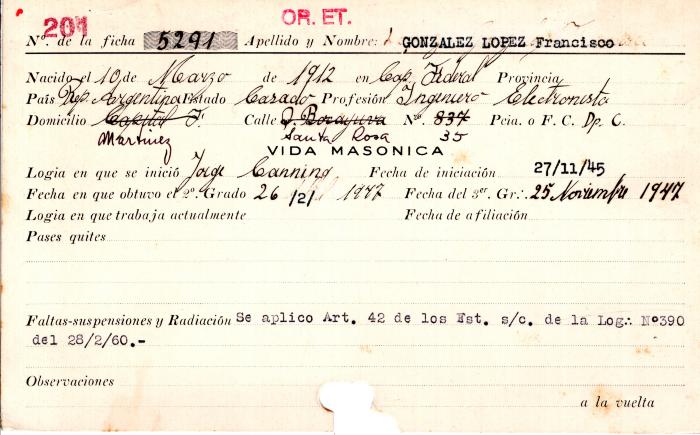 201 OR. ET.
Nº. de la ficha 5291 Apellido y Nombre: GONZALEZ LOPEZ Francisco
Nacido el 10 de Marzo de 1912 en Cap. Federal Provincia
País Rep. Argentina Estado Casado Profesión Ingeniero Electronista
Domicilio Capital F. Calle Nº 837 Pcia. o F. C. Dp. C.
Martinez Santa Rosa 35
VIDA MASONICA
Logia en que se inició Jorge Canning Fecha de iniciación 27/11/45
Fecha en que obtuvo el 2º. Grado 26 /2/ 1947 Fecha del 3er. Gr.: 25 Noviembre 1947
Logia en que trabaja actualmente Fecha de afiliación
Pases quites
Faltas-suspensiones y Radiación Se aplico Art. 42 de los Est. s/c. de la Log∴ Nº390
del 28/2/60.-
Observaciones
a la vuelta